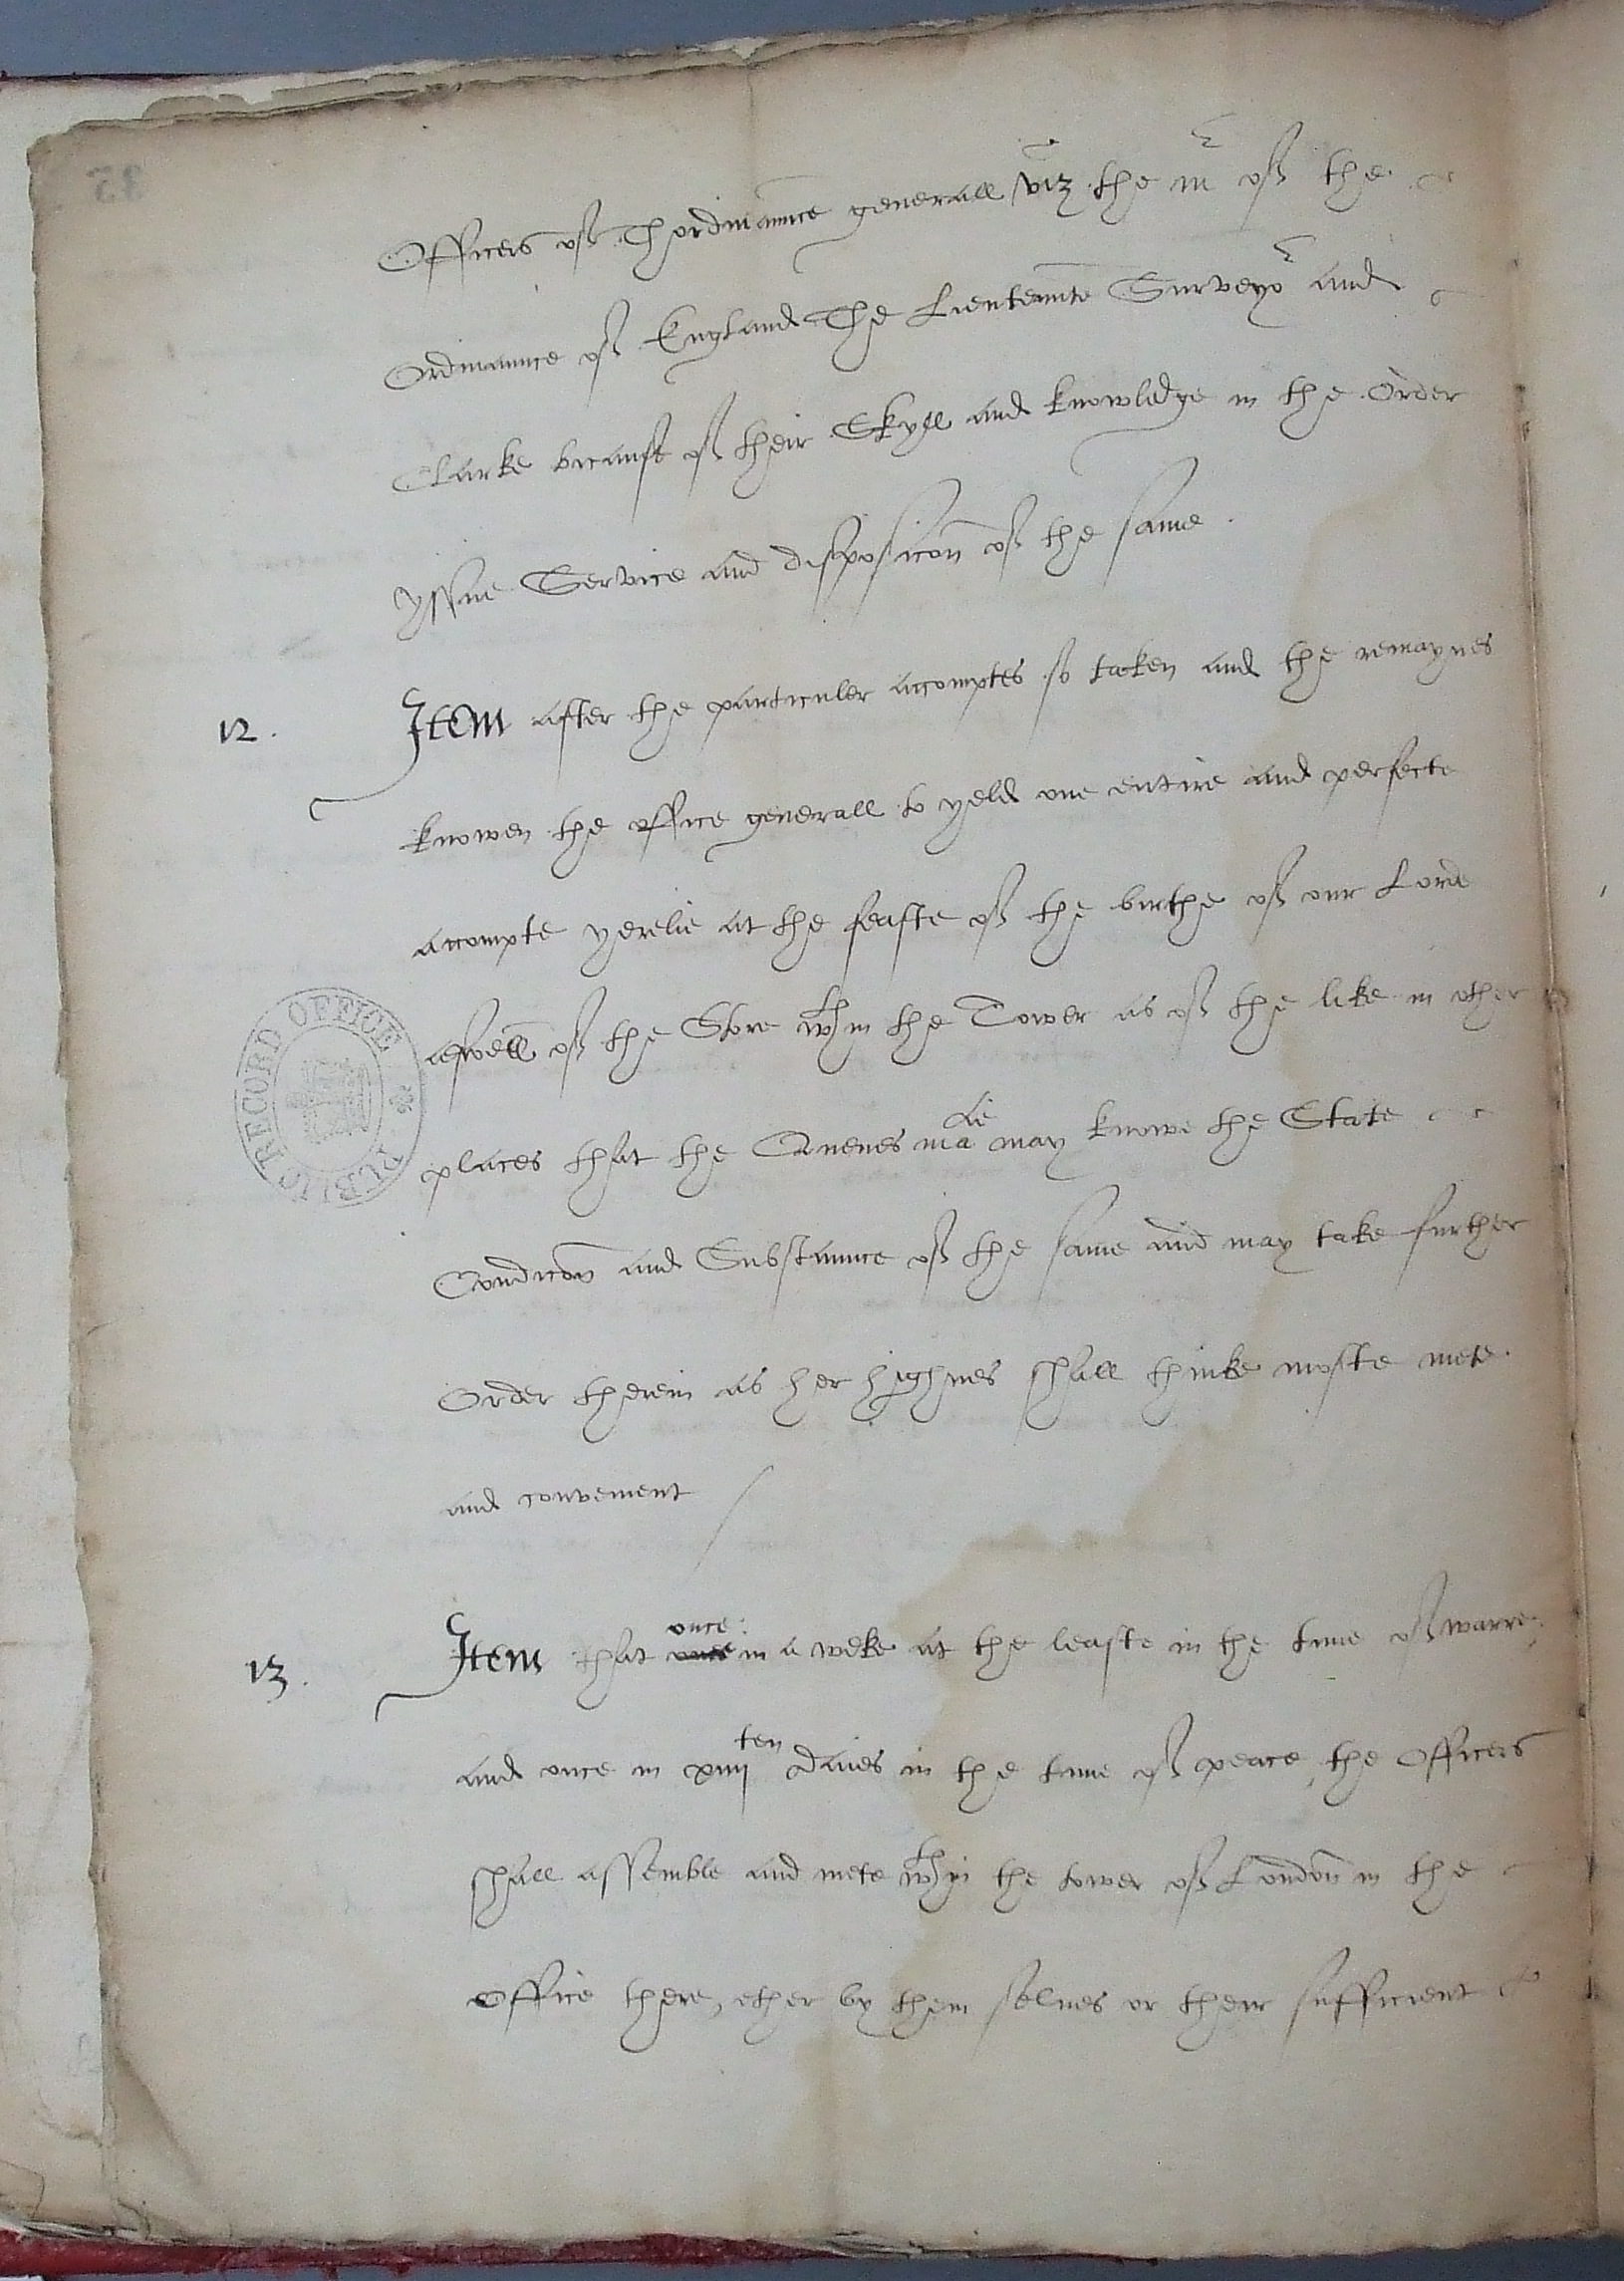 Officers of Thordinaunce generall viz the mr of the
Ordinaunce of England The Lieutennte Surveyor and
Clarke bicause of their Skyll and knowledge in the Order
yssue Service and disposicon of the same.
12. Item after the particuler accomptes so taken and the remaynes
knowen the office generall to yeld one entire and perfecte
accompte yerelie at the feaste of the birthe of our Lorde
aswell of the Store wthin the Tower as of the like in other
places that the Quenes matie may knowe the State
Condicon and Substaunce of the same and may take further
Order therein as her highnes shall thinke moste mete
and convenient
13. Item that once once in a weke at the leaste in the time of warre,
and once in xiiij ten daies in the time of peace, the Officers
shall assemble and mete wthin the tower of London in the
Office there, ether by them selves or their sufficient
PUBLIC RECORD OFFICE
35